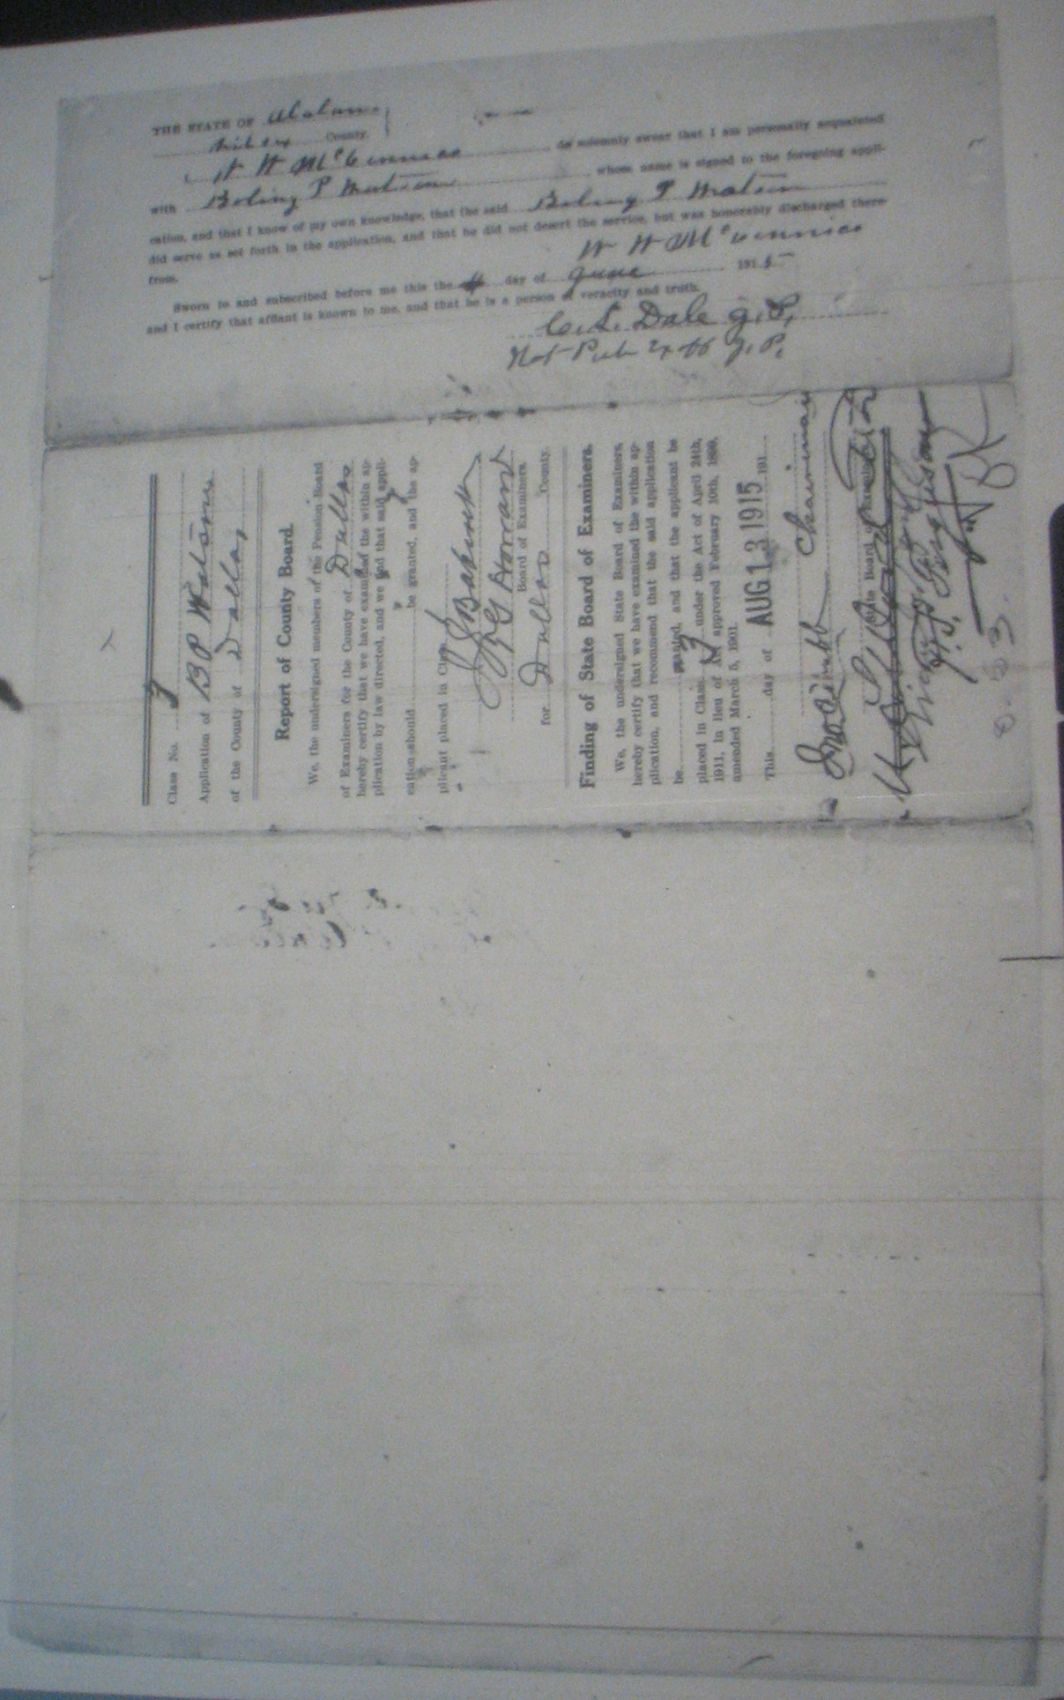 THE STATE OF Alabama
County.
W W McConnico do solemnly swear that I am personally acquainted
with Boling P Watson whose name is signed to the foregoing appli-
cation, and that I know of my own knowledge, that the said Boling P Watson
did serve as set forth in the application, and that he did not desert the service, but was honorably discharged there-
from.
W W McConnico
Sworn to and subscribed before me this the day of June 1915
and I certify that affiant is known to me, and that he is a person of veracity and truth.
C. L. Dale J. P.
Not Pub Ex off J. P.
Class No. 3
Application of B P Watson
of the County of Dallas
Report of County Board.
We, the undersigned members of the Pension Board
of Examiners for the County of Dallas
hereby certify that we have examined the within ap-
plication by law directed, and we find that said appli-
cation should be granted, and the ap-
plicant placed in Class
Howard
Board of Examiners.
for Dallas County.
Finding of State Board of Examiners.
We, the undersigned State Board of Examiners,
hereby certify that we have examined the within ap-
plication, and recommend that the said application
be granted, and that the applicant be
placed in Class 3 under the Act of April 24th,
1911, in lieu of Act approved February 10th, 1899,
amended March 5, 1901.
This day of AUG 13 1915 191
Chairman
State Board of Examiners
J. J. Ferguson